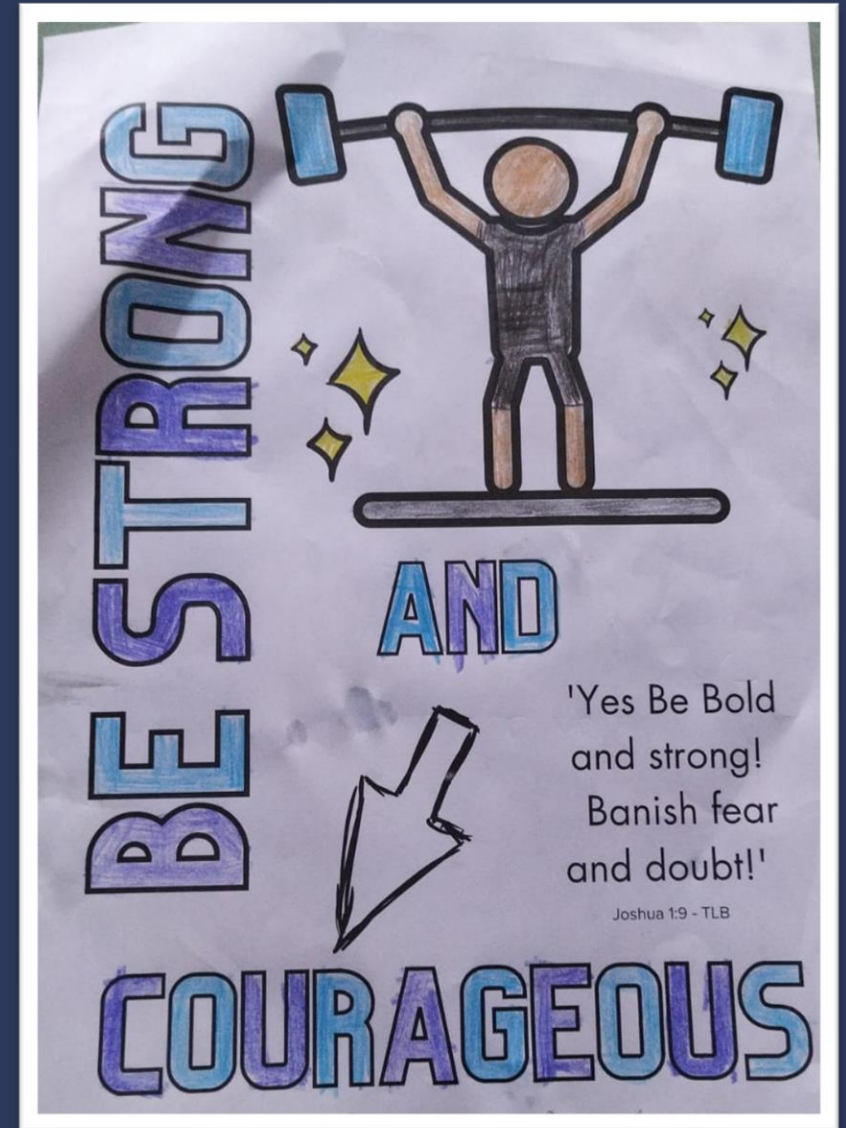 BE STRONG
AND
'Yes Be Bold
and strong!
Banish fear
and doubt!'
Joshua 1:9 - TLB
COURAGEOUS